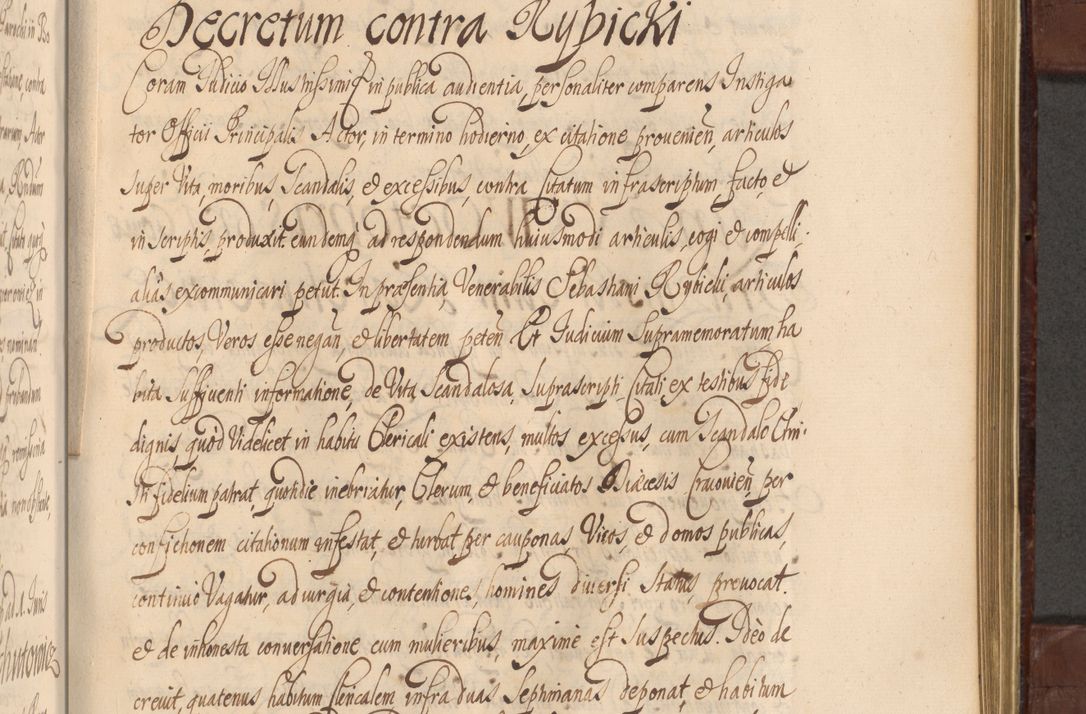 Decretum contra Rybicki
Coram Judicio Illustrissimi et in publica audientia, personaliter comparens Instiga
tor Officii Principalis Actor, in termino hodierno, ex citatione provenien, articulos
super Vita, moribus, Scandalis, et excessibus, contra Citatum infrascriptum facto, et
in scriptis, produxit eundemq ad respondendum huiusmodi articulis, cogi et compelli
alias excommunicari petiit. In præsentia, Venerabilis Sebastiani Rybicki, articulos
productos, Veros esse negan, et libertatem peten Et Judicium Supramemoratum ha
bita sufficienti informatione, de Vita Scandalosa, suprascripti Citati ex testibus fide
dignis, quod Videlicet in habitu Clericali existens, multos excessus, cum Scandalo Chri
sti fidelium patrat, quotidie inebriatur, Clerum, et beneficiatos Diæcesis Cracovien, per
confictionem citationum infestat, et turbat, per cauponas, Vicos, et domos publicas,
continuò Vagatur, ad iurgia, et contentiones, homines diversi Status provocat.
et de inhonesta conversatione cum mulieribus, maxime est suspectus. Ideò de
crevit, quatenus habitum Clericalem infra duas Septimanas deponat, et habitum